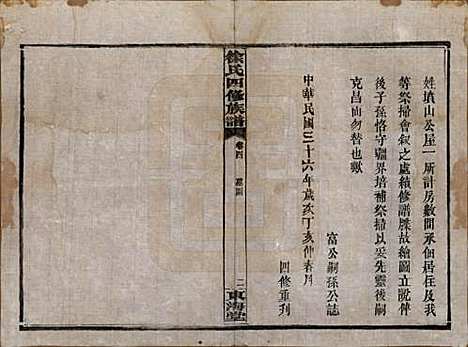 姓墳山公屋一所計房數間承個居住及我
等祭掃會敘之處績修譜牒故繪圖立說俾
後子孫恪守疆界培補祭掃以妥先靈後嗣
克昌而勿替也歟
富公嗣孫公誌
中華民國三十六年歲次丁亥仲春月
四修重刊
徐氏四修族譜
卷四
墓圖
二
東海堂